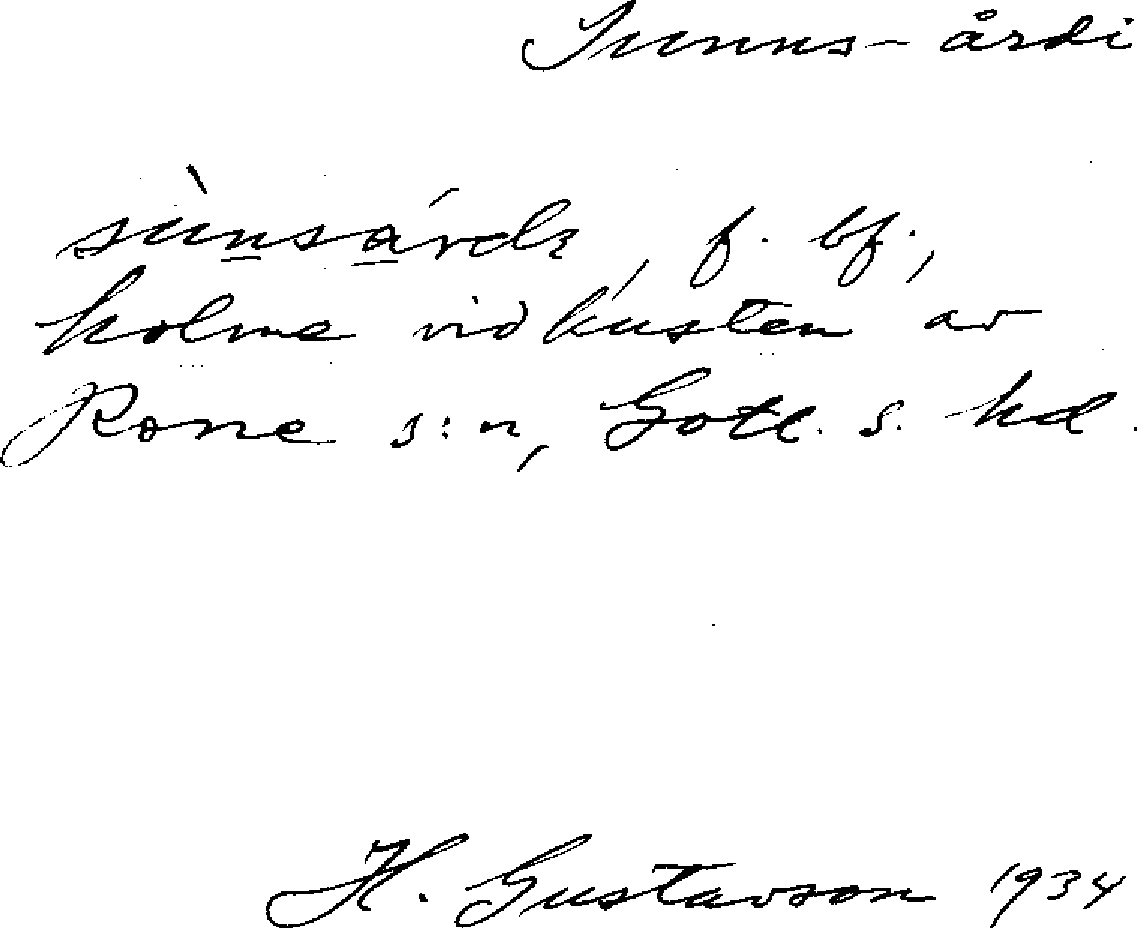 Sunns-årdi
sùnsárdı, f. bf.,
holme vid kusten av
Rone s:n, Gotl. s. hd.
H. Gustavson 1934